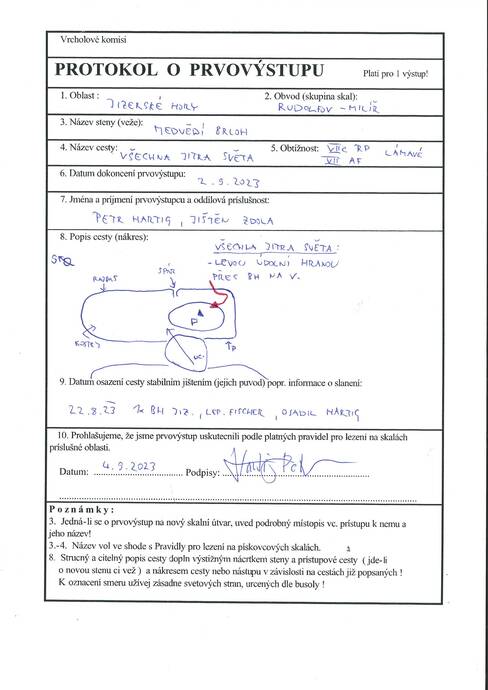 Vrcholové komisi
PROTOKOL O PRVOVÝSTUPU Platí pro 1 výstup!
1. Oblast : JIZERSKÉ HORY
2. Obvod (skupina skal): RUDOLFOV - MILÍŘ
3. Název steny (veže): MEDVĚDÍ BRLOH
4. Název cesty: VŠECHNA JITRA SVĚTA
5. Obtížnost: VIIc RP LÁMAVÉ
VII AF
6. Datum dokoncení prvovýstupu: 2.9.2023
7. Jména a príjmení prvovýstupcu a oddílová príslušnost:
PETR HARTIG, JIŠTĚN ZDOLA
8. Popis cesty (nákres):
VŠECHNA JITRA SVĚTA:
- LEVOU ÚDOLNÍ HRANOU
PŘES BH NA V.
SPÁR
P
VC.
P
9. Datum osazení cesty stabilním jištením (jejich puvod) popr. informace o slanení:
22.8.23 1x BH JIZ., LEP. FISCHER, OSADIL HARTIG
10. Prohlašujeme, že jsme prvovýstup uskutecnili podle platných pravidel pro lezení na skalách
príslušné oblasti.
Datum: 4.9.2023 Podpisy:
Poznámky:
3. Jedná-li se o prvovýstup na nový skalní útvar, uved podrobný místopis vc. prístupu k nemu a
jeho název!
3.-4. Název vol ve shode s Pravidly pro lezení na pískovcových skalách.
8. Strucný a citelný popis cesty dopln výstižným nácrtkem steny a prístupové cesty ( jde-li
o novou stenu ci vež ) a nákresem cesty nebo nástupu v závislosti na cestách již popsaných !
K oznacení smeru užívej zásadne svetových stran, urcených dle busoly !